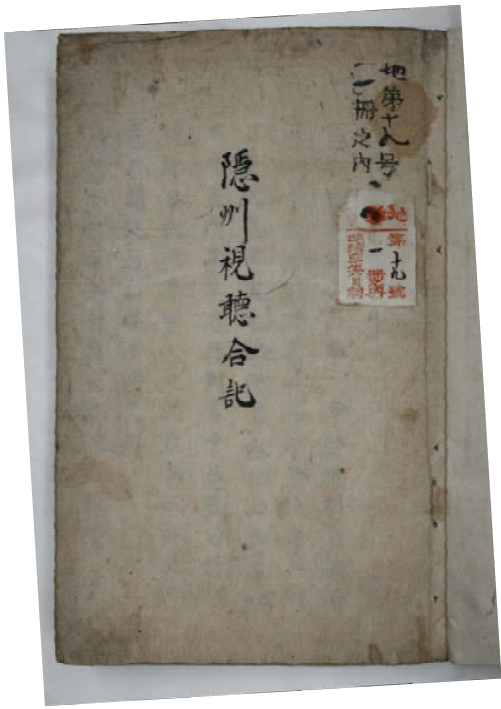 地第十九号
一冊之内
地 第十九號
一冊
隱州視聽合記